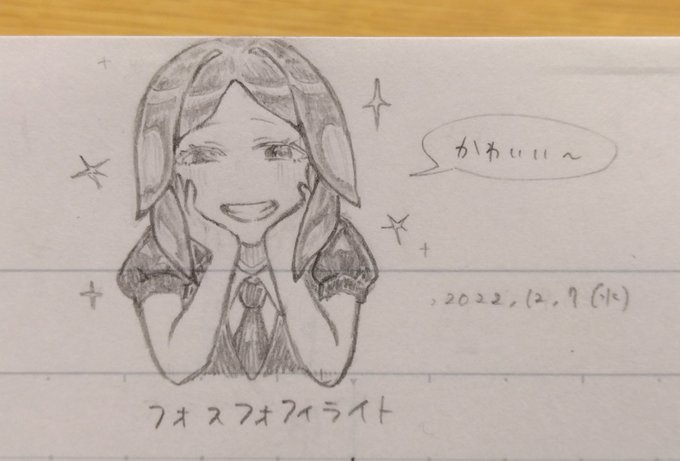 かわいい～
2022.12.7(水)
フォスフォフィライト